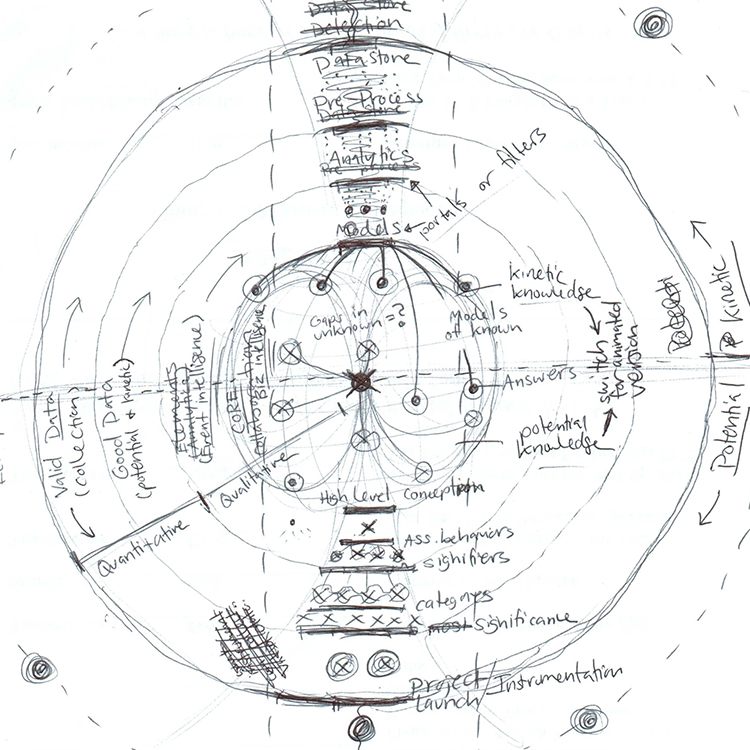 Data Store
Detection
Data Store
Pre Process
Data Store
Analytics
Pre process
Models
portals or filters
kinetic
knowledge
Gaps in
unknown = ?
Models
of known
Answers
switch
for animated
version
potential
knowledge
Kinetic
Potential
Valid Data
(collection)
Good Data
(potential & kinetic)
Elements
(Event intelligence)
CORE:
Collaboration
Biz intelligence
Quantitative
Qualitative
High Level Conception
Ass. behaviors
signifiers
categorys
most significance
Project/Instrumentation
Launch